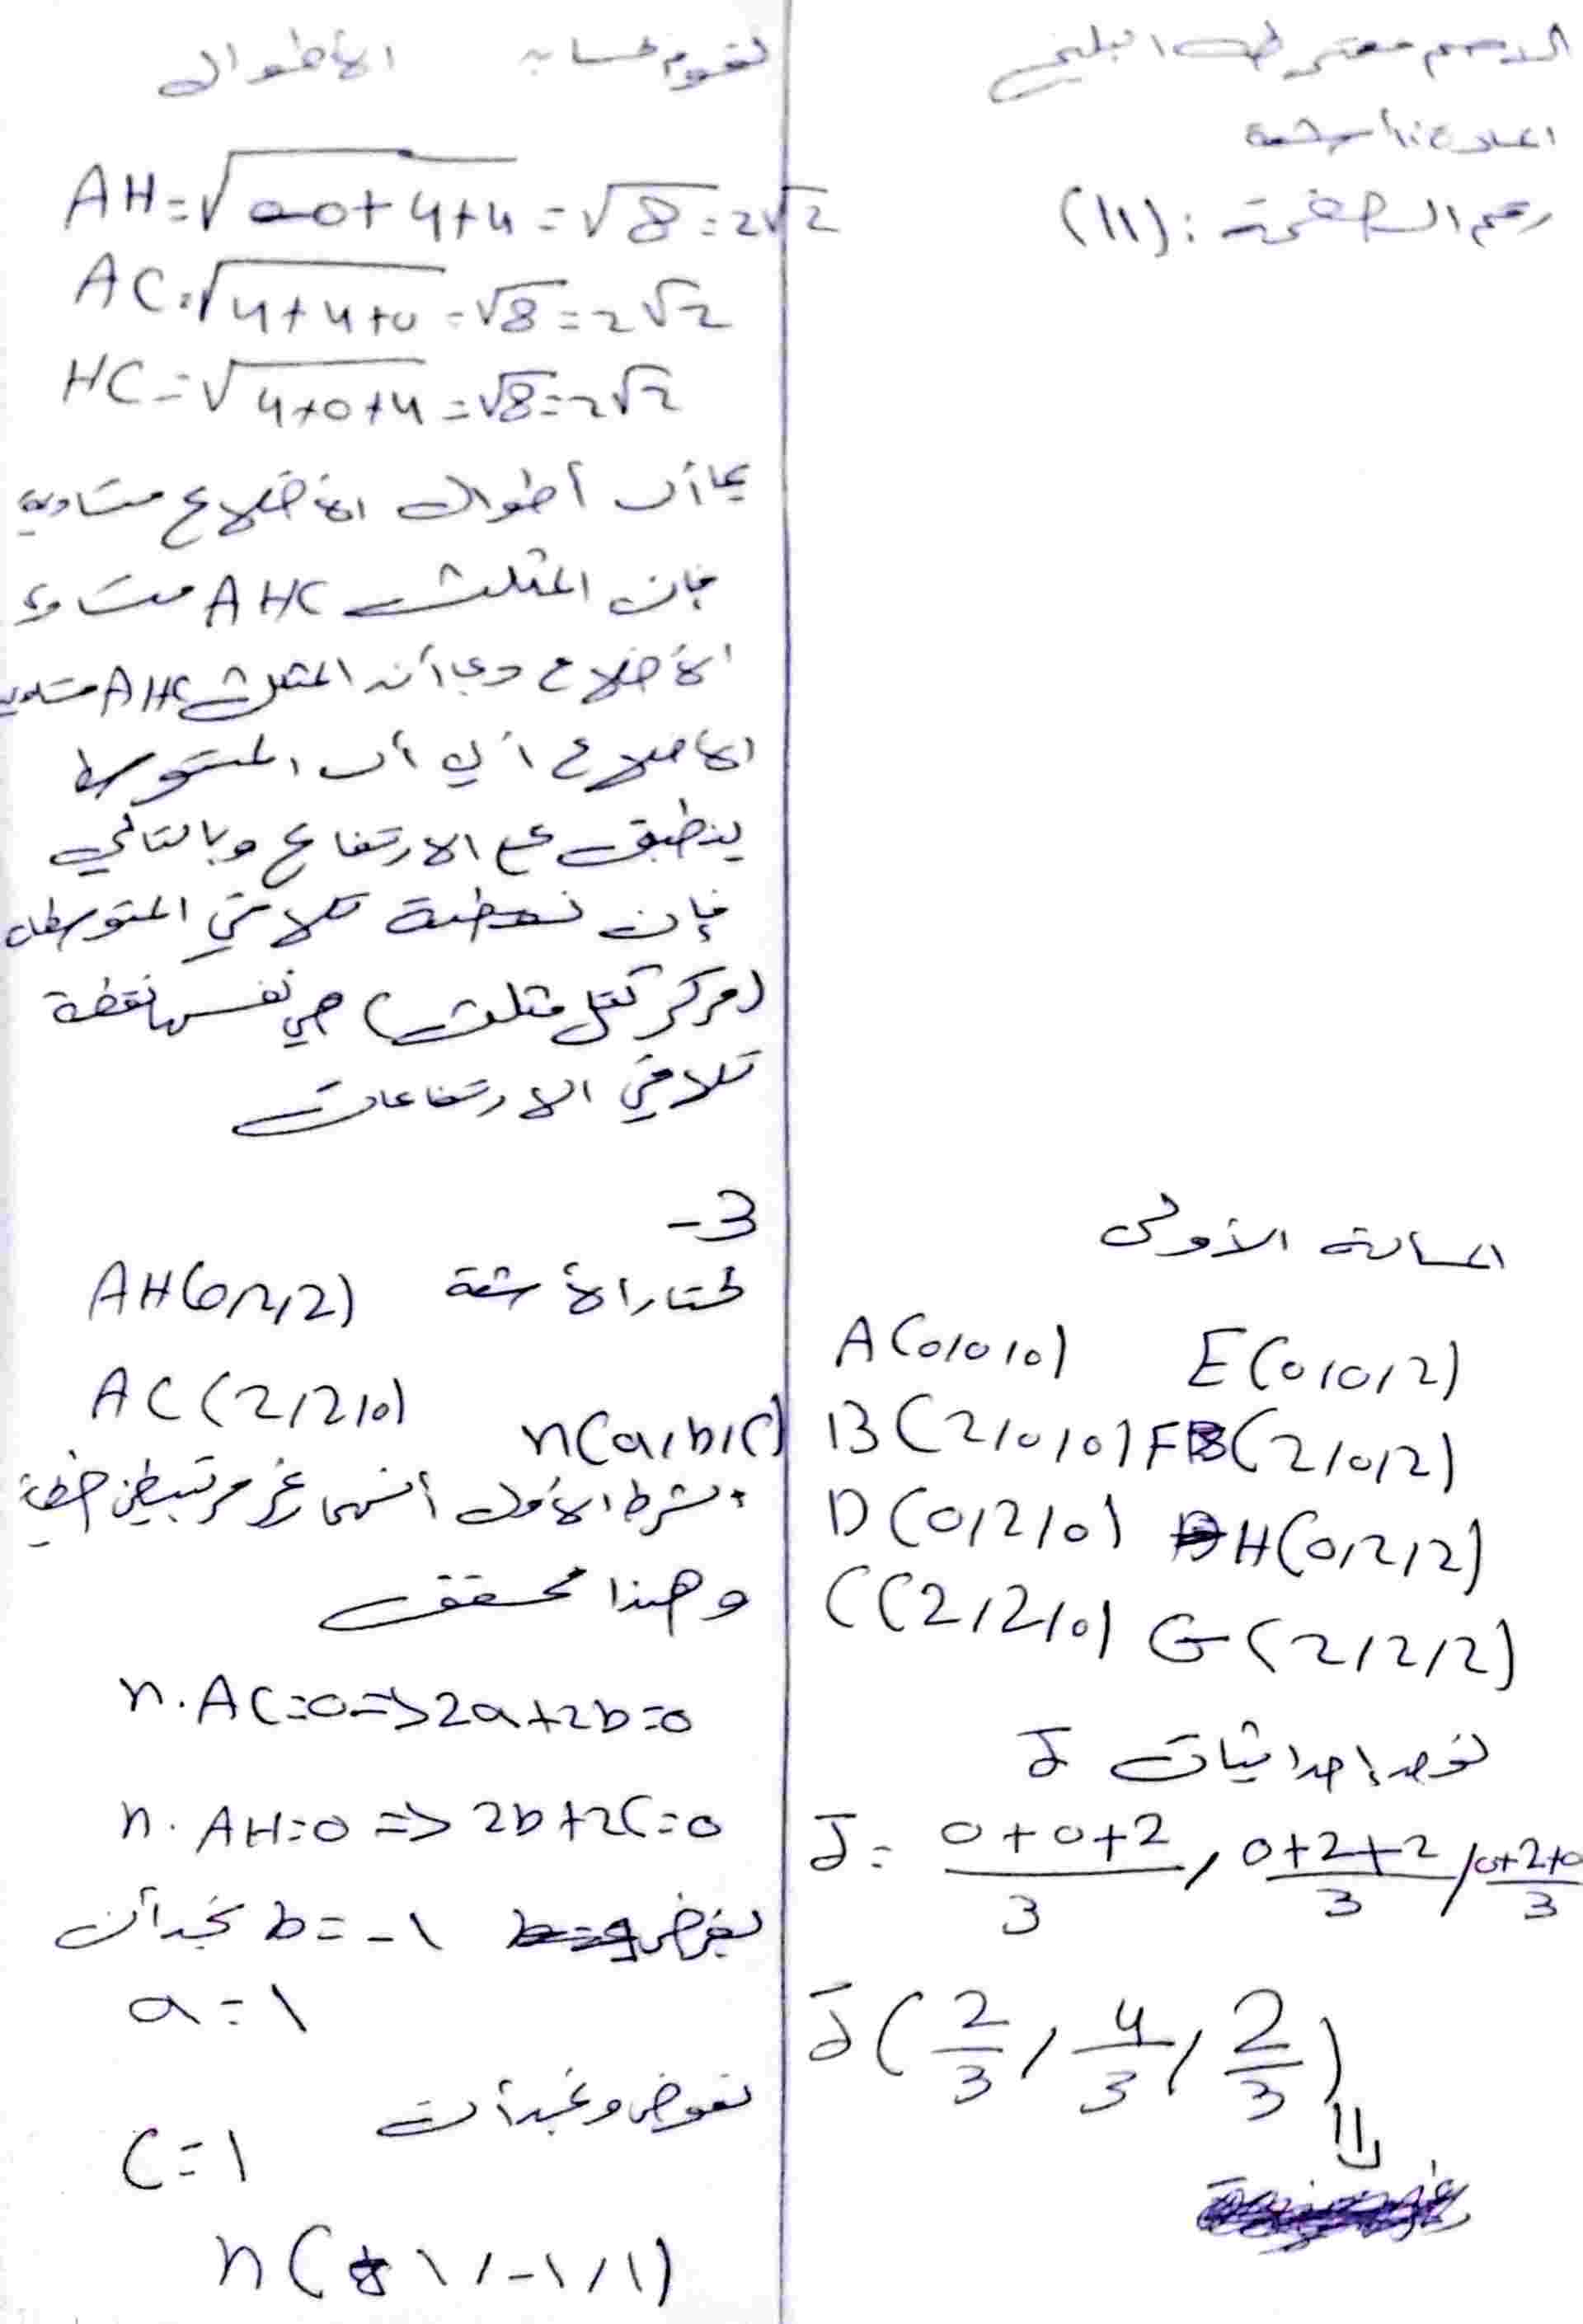 الاسم معتز طه البليخي
المادة: أشعة
رقم الصفحة: (11)
المسألة الأولى
A(0,0,0) E(0,0,2)
B(2,0,0) F(2,0,2)
D(0,2,0) H(0,2,2)
C(2,2,0) G(2,2,2)
نوجد إحداثيات J
J = \frac{0+0+2}{3}, \frac{0+2+2}{3}, \frac{0+2+0}{3}
J(\frac{2}{3}, \frac{4}{3}, \frac{2}{3})
نقوم بحساب الأطوال
AH = √(0+4+4) = √8 = 2√2
AC = √(4+4+0) = √8 = 2√2
HC = √(4+0+4) = √8 = 2√2
بما أن أطوال الأضلاع متساوية
فإن المثلث AHC متساوي
الأضلاع وبما أن المثلث AHC متساوي
الأضلاع أي أن المتوسط
ينطبق مع الارتفاع وبالتالي
فإن نقطة تلاقي المتوسطات
(مركز ثقل مثلث) هي نفسها نقطة
تلاقي الارتفاعات
-3
نختار الأشعة AH(0,2,2)
AC(2,2,0)
n(a,b,c)
الشرط الأول أنهما غير مرتبطين خطياً
وهذا محقق
n.AC=0=>2a+2b=0
n.AH=0=>2b+2C=0
نفرض b=-1 نجد أن
a=1
نعوض ونجد أن
C=1
n(1,-1,1)